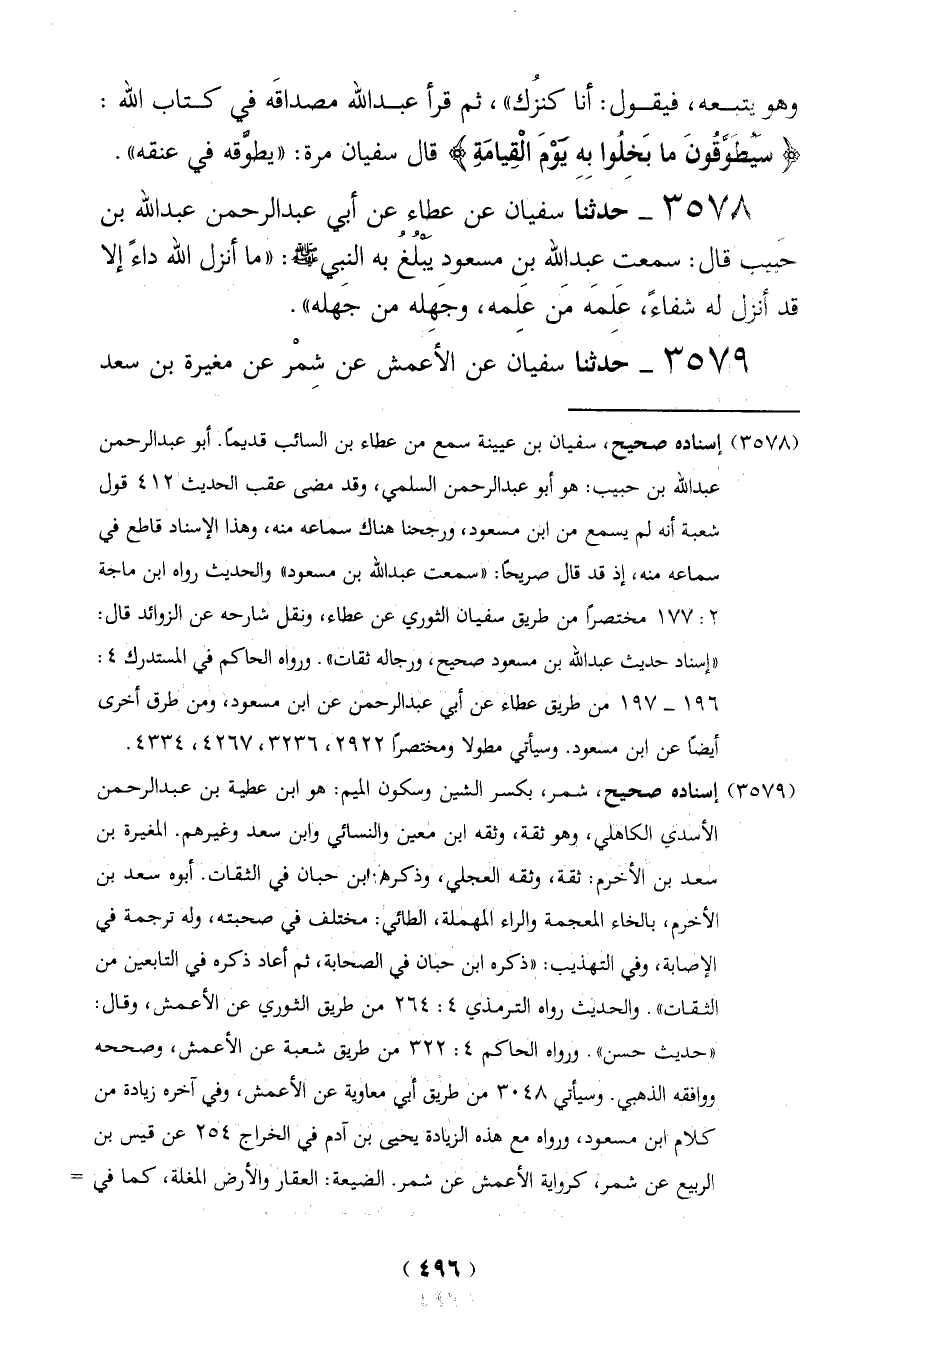 وهو يتبعه، فيقول: أنا كنزُك»، ثم قرأ عبدالله مصداقَه في كتاب الله :
﴿ سَيُطَوَّقُونَ ما بَخِلُوا بِهِ يَوْمَ الْقِيامَةِ ﴾ قال سفيان مرة: «يطوَّقه في عنقه».
٣٥٧٨ ـ حدثنا سفيان عن عطاء عن أبي عبدالرحمن عبدالله بن
حَبِيب قال: سمعت عبدالله بن مسعود يَبْلُغُ به النبي ﷺ: «ما أنزل الله داءً إلا
قد أَنزل له شفاءً، عَلِمَه مَن عَلِمه، وجَهِله من جَهله».
٣٥٧٩ ـ حدثنا سفيان عن الأعمش عن شِمْر عن مغيرة بن سعد
(٣٥٧٨) إسناده صحيح، سفيان بن عيينة سمع من عطاء بن السائب قديماً. أبو عبدالرحمن
عبدالله بن حبيب: هو أبو عبدالرحمن السلمي، وقد مضى عقب الحديث ٤١٢ قول
شعبة أنه لم يسمع من ابن مسعود، ورجحنا هناك سماعه منه، وهذا الإسناد قاطع في
سماعه منه، إذ قد قال صريحًا: «سمعت عبدالله بن مسعود» والحديث رواه ابن ماجة
٢: ١٧٧ مختصرًا من طريق سفيان الثوري عن عطاء، ونقل شارحه عن الزوائد قال:
«إسناد حديث عبدالله بن مسعود صحيح، ورجاله ثقات». ورواه الحاكم في المستدرك ٤:
١٩٦ ـ ١٩٧ من طريق عطاء عن أبي عبدالرحمن عن ابن مسعود، ومن طرق أخرى
أيضًا عن ابن مسعود. وسيأتي مطولا ومختصرًا ٢٩٢٢، ٣٢٣٦، ٤٢٦٧، ٤٣٣٤.
(٣٥٧٩) إسناده صحيح، شمر، بكسر الشين وسكون الميم: هو ابن عطية بن عبدالرحمن
الأسدي الكاهلي، وهو ثقة، وثقه ابن معين والنسائي وابن سعد وغيرهم. المغيرة بن
سعد بن الأخرم: ثقة، وثقه العجلي، وذكره ابن حبان في الثقات. أبوه سعد بن
الأخرم، بالخاء المعجمة والراء المهملة، الطائي: مختلف في صحبته، وله ترجمة في
الإصابة، وفي التهذيب: «ذكره ابن حبان في الصحابة، ثم أعاد ذكره في التابعين من
الثقات». والحديث رواه الترمذي ٤: ٢٦٤ من طريق الثوري عن الأعمش، وقال:
«حديث حسن». ورواه الحاكم ٤: ٣٢٢ من طريق شعبة عن الأعمش، وصححه
ووافقه الذهبي. وسيأتي ٣٠٤٨ من طريق أبي معاوية عن الأعمش، وفي آخره زيادة من
كلام ابن مسعود، ورواه مع هذه الزيادة يحيى بن آدم في الخراج ٢٥٤ عن قيس بن
الربيع عن شمر، كرواية الأعمش عن شمر. الضيعة: العقار والأرض المغلة، كما في =
(٤٩٦)